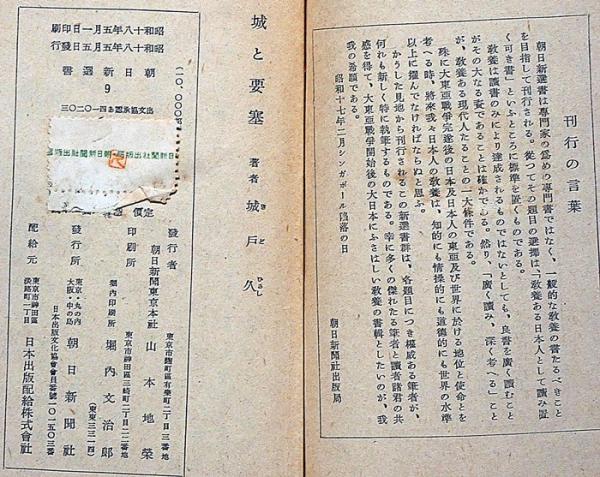 刊行の言葉
朝日新選書は專門家の爲めの專門書ではなく、一般的な敎養の書たるべきこと
を目指して刊行される。從つてその題目の選擇は、「敎養ある日本人として讀み置
くべき書」といふところに標準を置くものである。
敎養は讀書のみにより達成されるものではないとしても、良書を廣く讀むこと
がその大なる要であることは確かでしる。然り、「廣く讀み、深く考へる」こと
が、敎養ある現代人たることの一大條件である。
殊に大東亞戰爭完遂後の日本及日本人の東亞及び世界に於ける地位と使命とを
考へる時、將來我々日本人の敎養は、知的にも情操的にも道德的にも世界の水準
以上に擢んでなければならぬと思ふ。
かうした見地から刊行されるこの新選書群は、各題目につき權威ある筆者が、
何れも新しく特に執筆するものである。幸に多くの傑れたる筆者と讀者諸君の共
感を得て、大東亞戰爭開始後の大日本にふさはしい敎養の書輯としたいのが、我
我の希願である。
昭和十七年二月シンガポール陷落の日
朝日新聞社出版局
城と要塞
著者 城戶久
きど ひさし
昭和十八年五月一日印刷
昭和十八年五月五日發行
朝日新選書
9
出文協承認あ401020三
朝日新聞社出版局
定價
發行者
東京市麴町區有樂町二丁目三番地
朝日新聞東京本社
山本地榮
印刷所
東京市神田區三崎町二丁目二二番地
堀內印刷所
堀內文治郎
(東東三三一四)
發行所
東京・丸の內
大阪・中の島
朝日新聞社
日本出版文化協會會員番號一〇一五〇三番
配給元
東京市神田區
淡路町二丁目
日本出版配給株式會社